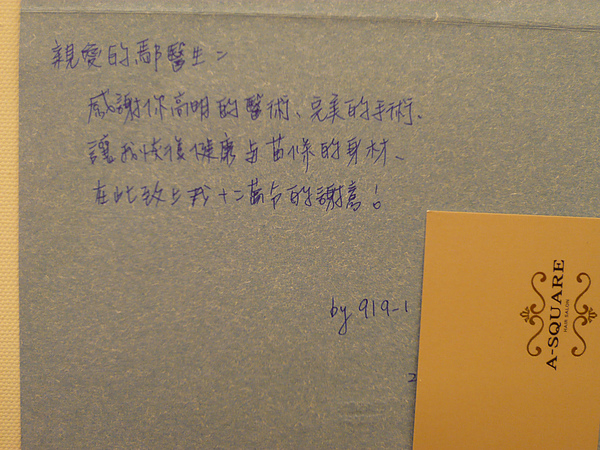 親愛的鄢醫生=
感謝你高明的醫術、完美的手術、
讓我恢復健康与苗條的身材、
在此致上我十二萬分的謝意!
by 919-1
2
A-SQUARE
HAIR SALON